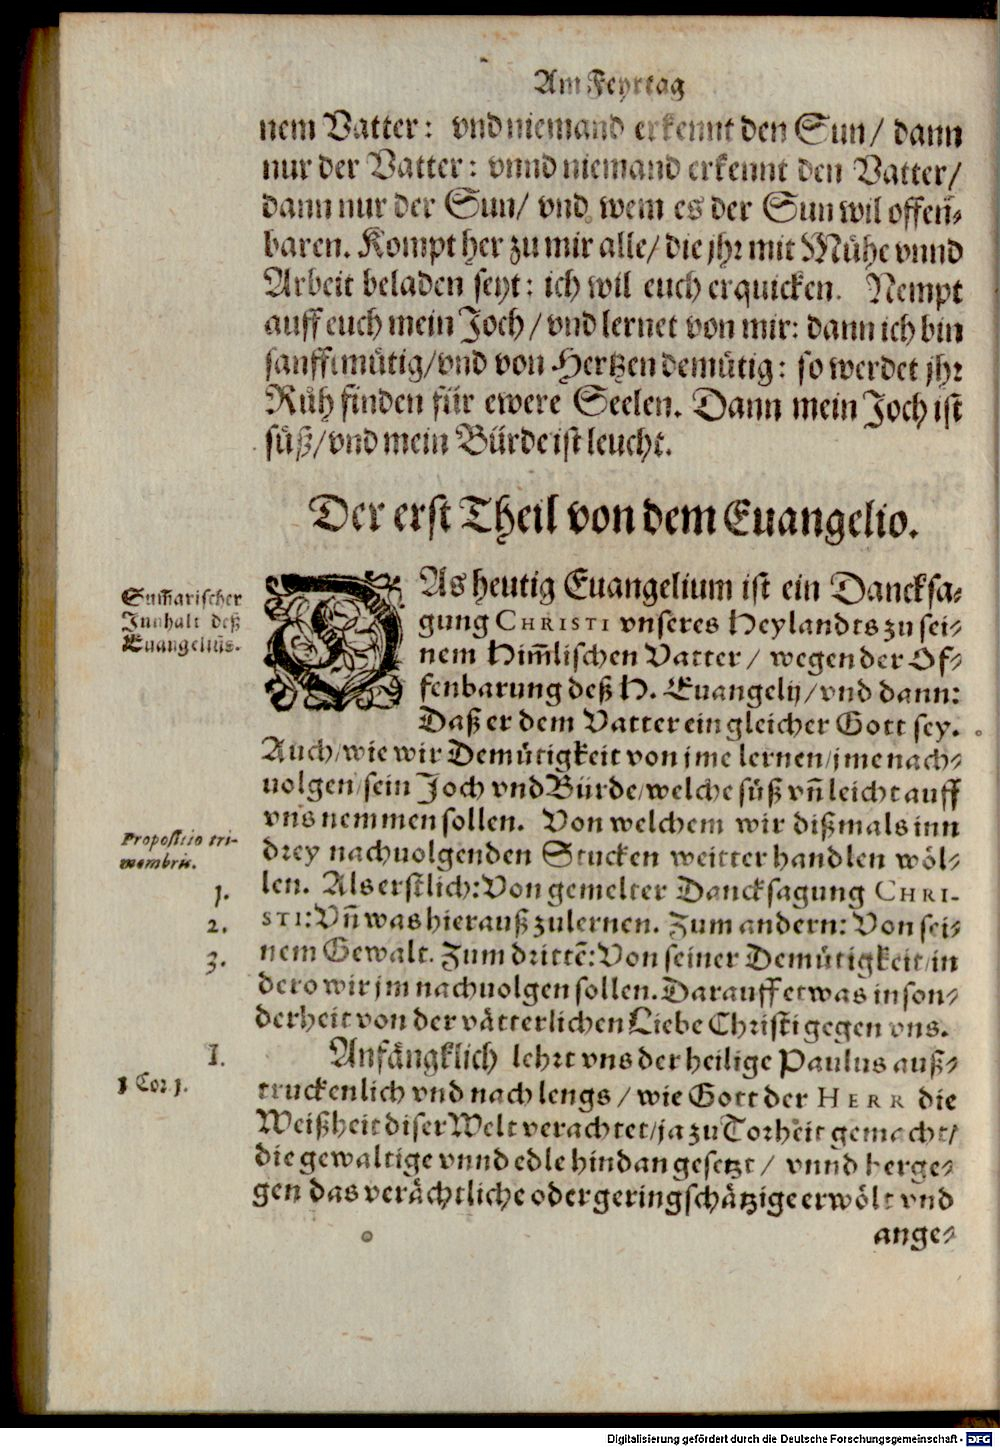 Am Feyrtag
nem Vatter: vnd niemand erkennt den Sun/ dann
nur der Vatter: vnnd niemand erkennt den Vatter/
dann nur der Sun/ vnd wem es der Sun wil offen⸗
baren. Kompt her zu mir alle/ die jhr mit Mühe vnnd
Arbeit beladen seyt: ich wil euch erquicken. Nempt
auff euch mein Joch/ vnd lernet von mir: dann ich bin
sanfftmütig/ vnd von Hertzen demütig: so werdet jhr
Rüh finden für ewere Seelen. Dann mein Joch ist
süß/ vnd mein Bürde ist leucht.
Der erst Theil von dem Euangelio.
Sum̃arischer
Jnnhalt deß
Euangeliũs.
DAs heutig Euangelium ist ein Dancksa⸗
gung CHRISTI vnseres Heylandts zu sei⸗
nem Him̃lischen Vatter/ wegen der Of⸗
fenbarung deß H. Euangelij/ vnd dann:
Daß er dem Vatter ein gleicher Gott sey.
Auch/ wie wir Demütigkeit von jme lernen/ jme nach⸗
uolgen/ sein Joch vnd Bürde/ welche süß vñ leicht auff
vns nemmen sollen. Von welchem wir dißmals inn
Propositio tri-
membris.
drey nachuolgenden Stucken weitter handlen wöl⸗
1.
len. Als erstlich: Von gemelter Dancksagung CHRI-
2.
STI: Vñ was hierauß zulernen. Zum andern: Von sei⸗
3.
nem Gewalt. Zum drittẽ: Von seiner Demütigkeit/ in
dero wir jm nachuolgen sollen. Darauff etwas in son⸗
derheit von der vätterlichen Liebe Christi gegen vns.
I.
Anfängklich lehrt vns der heilige Paulus auß⸗
1 Cor 1.
truckenlich vnd nach lengs/ wie Gott der HERR die
Weißheit diser Welt verachtet/ ja zu Torheit gemacht/
die gewaltige vnnd edle hindan gesetzt/ vnnd herge⸗
gen das verächtliche oder geringschätzige erwölt vnd
ange⸗
Digitalisierung gefördert durch die Deutsche Forschungsgemeinschaft - DFG